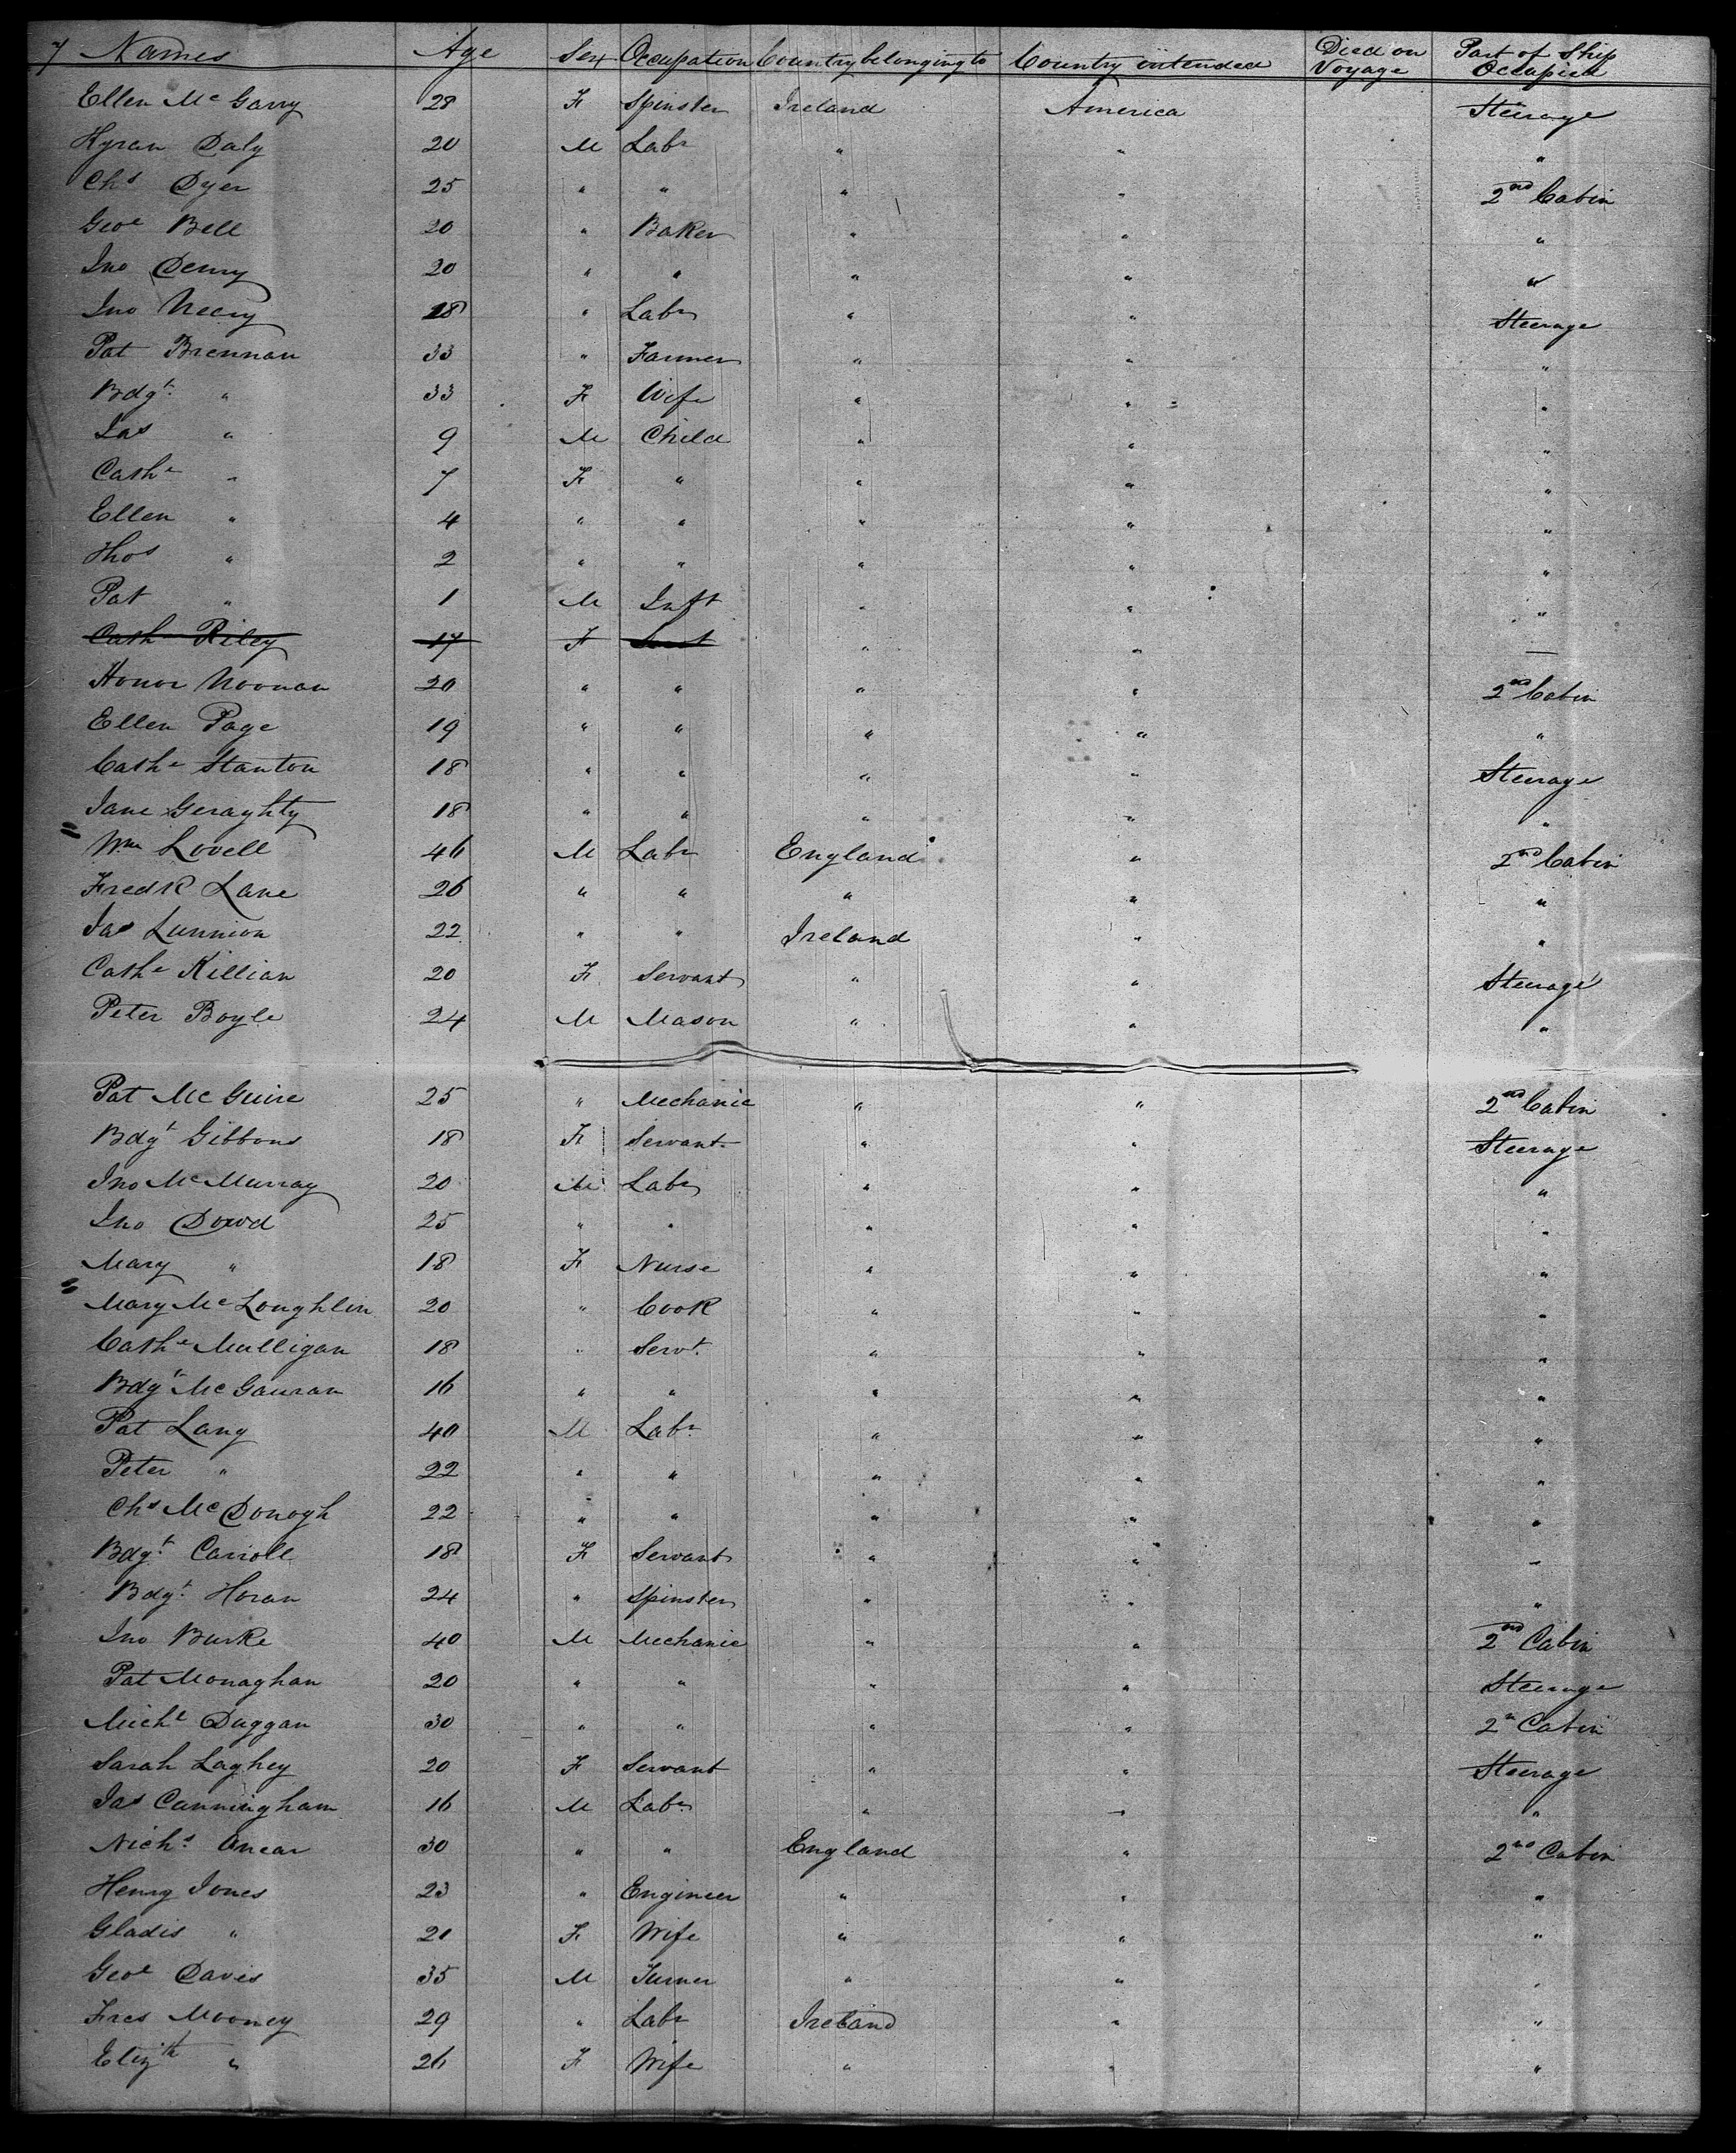 7 Names Age Sex Occupation Country belonging to Country intended Died on Voyage Part of Ship Occupied
Ellen Mc Garry 28 F Spinster Ireland America Steerage
Kyran Daly 20 M Labr " " "
Chs Dyer 25 " " " " 2nd Cabin
Geoe Bell 20 " Baker " " "
Jno Denny 20 " " " " "
Jno Neary 18 " Labr " " Steerage
Pat Brennan 33 " Farmer " " "
Bdgt. " 33 F Wife " " "
Jas " 9 M Child " " "
Cathe " 7 F " " " "
Ellen " 4 " " " " "
Thos " 2 " " " " "
Pat " 1 M Inft " " "
Cath Riley 17 F " " —
Honor Noonan 20 " " " " 2nd Cabin
Ellen Page 19 " " " " "
Cathe Stanton 18 " " " " Steerage
Jane Geraghty 18 " " " " "
Wm Lovell 46 M Labr England " 2nd Cabin
Fredk Lane 26 " " " " "
Jas Lunnion 22 " " Ireland " "
Cathe Killian 20 F Servant " " Steerage
Peter Boyle 24 M Mason " " "
Pat Mc Guire 25 " Mechanic " " 2nd Cabin
Bdgt Gibbons 18 F Servant " " Steerage
Jno Mc Murray 20 M Labr " " "
Jno Dowd 25 " " " " "
Mary " 18 F Nurse " " "
Mary Mc Loughlin 20 " Cook " " "
Cathe Mulligan 18 " Servt. " " "
Bdgt Mc Gauran 16 " " " " "
Pat Lang 40 M Labr " " "
Peter " 22 " " " " "
Chs Mc Donogh 22 " " " " "
Bdgt. Carroll 18 F Servant " " "
Bdgt. Horan 24 " Spinster " " "
Jno Burke 40 M Mechanic " " 2nd Cabin
Pat Monaghan 20 " " " " Steerage
Michl Duggan 30 " " " " 2n Cabin
Sarah Laghey 20 F Servant " " Steerage
Jas Cunningham 16 M Labr " " "
Nichs. Anear 30 " " England " 2nd Cabin
Henry Jones 23 " Engineer " " "
Gladis " 21 F Wife " " "
Geoe Davis 35 M Turner " " "
Fres Mooney 29 " Labr Ireland " "
Elizth " 26 F Wife " " "